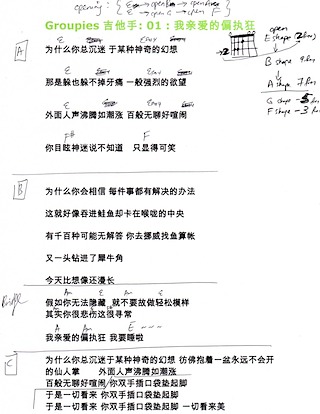 Groupies 吉他手: 01：我亲爱的偏执狂
A
为什么你总沉迷 于某种神奇的幻想
那是躲也躲不掉牙痛 一般强烈的欲望
外面人声沸腾如潮涨 百般无聊好喧闹
F# F
你目眩神迷说不知道 只显得可笑
B
为什么你会相信 每件事都有解决的办法
这就好像吞进鲑鱼却卡在喉咙的中央
有千百种可能无解答 你去挪威找鱼算帐
又一头钻进了犀牛角
今天比想像还漫长
Bridge
假如你无法隐藏 就不要故做轻松模样
其实你很悲伤这很寻常
我亲爱的偏执狂 我要睡啦
C
为什么你总沉迷于某种神奇的幻想 彷佛抱着一盆永远不会开
的仙人掌 外面人声沸腾如潮涨
百般无聊好喧闹 你双手插口袋垫起脚
于是一切看来 你双手插口袋垫起脚
于是一切看来 你双手插口袋垫起脚 一切看来美
open
E shape
B shape
A shape
G shape
F shape